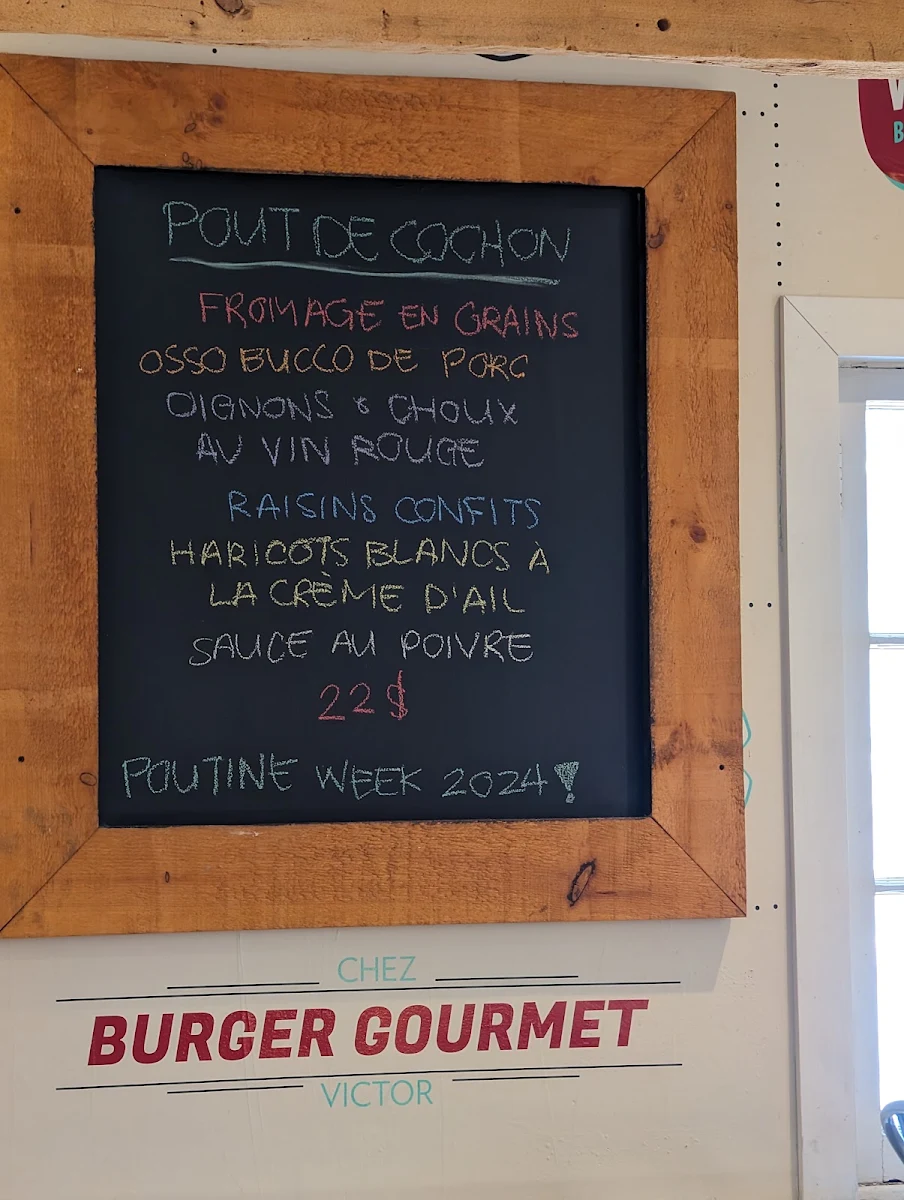 POUT DE COCHON
FROMAGE EN GRAINS
OSSO BUCCO DE PORC
OIGNONS & CHOUX
AU VIN ROUGE
RAISINS CONFITS
HARICOTS BLANCS À
LA CRÈME D'AIL
SAUCE AU POIVRE
22$
POUTINE WEEK 2024!
CHEZ
BURGER GOURMET
VICTOR